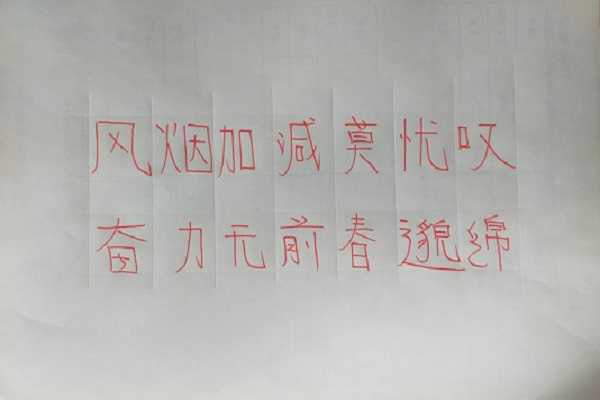 风烟加减莫忧叹
奋力无前春邈绵